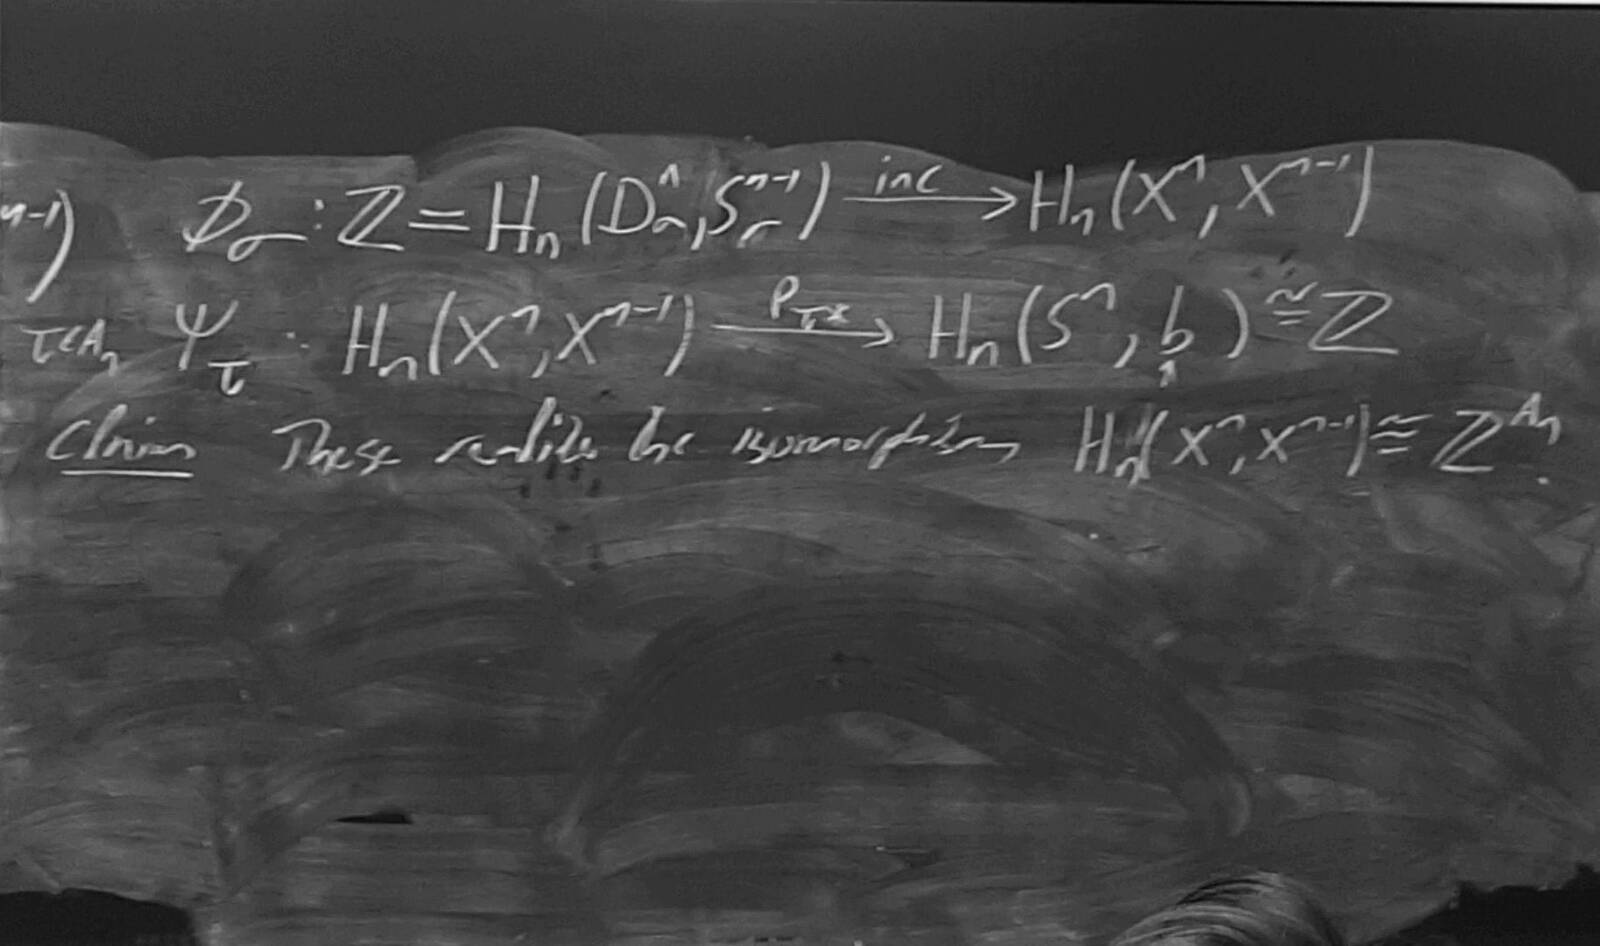 n-1) Φ_σ : ℤ = H_n (D^n_σ, S^{n-1}_σ) —inc→ H_n (X^n, X^{n-1})
τ∈A_n Ψ_τ : H_n (X^n, X^{n-1}) —P_{τ*}→ H_n (S^n, b) ≅ ℤ
↑
Claim These realize the isomorphism H_n (X^n, X^{n-1}) ≅ ℤ^{A_n}.